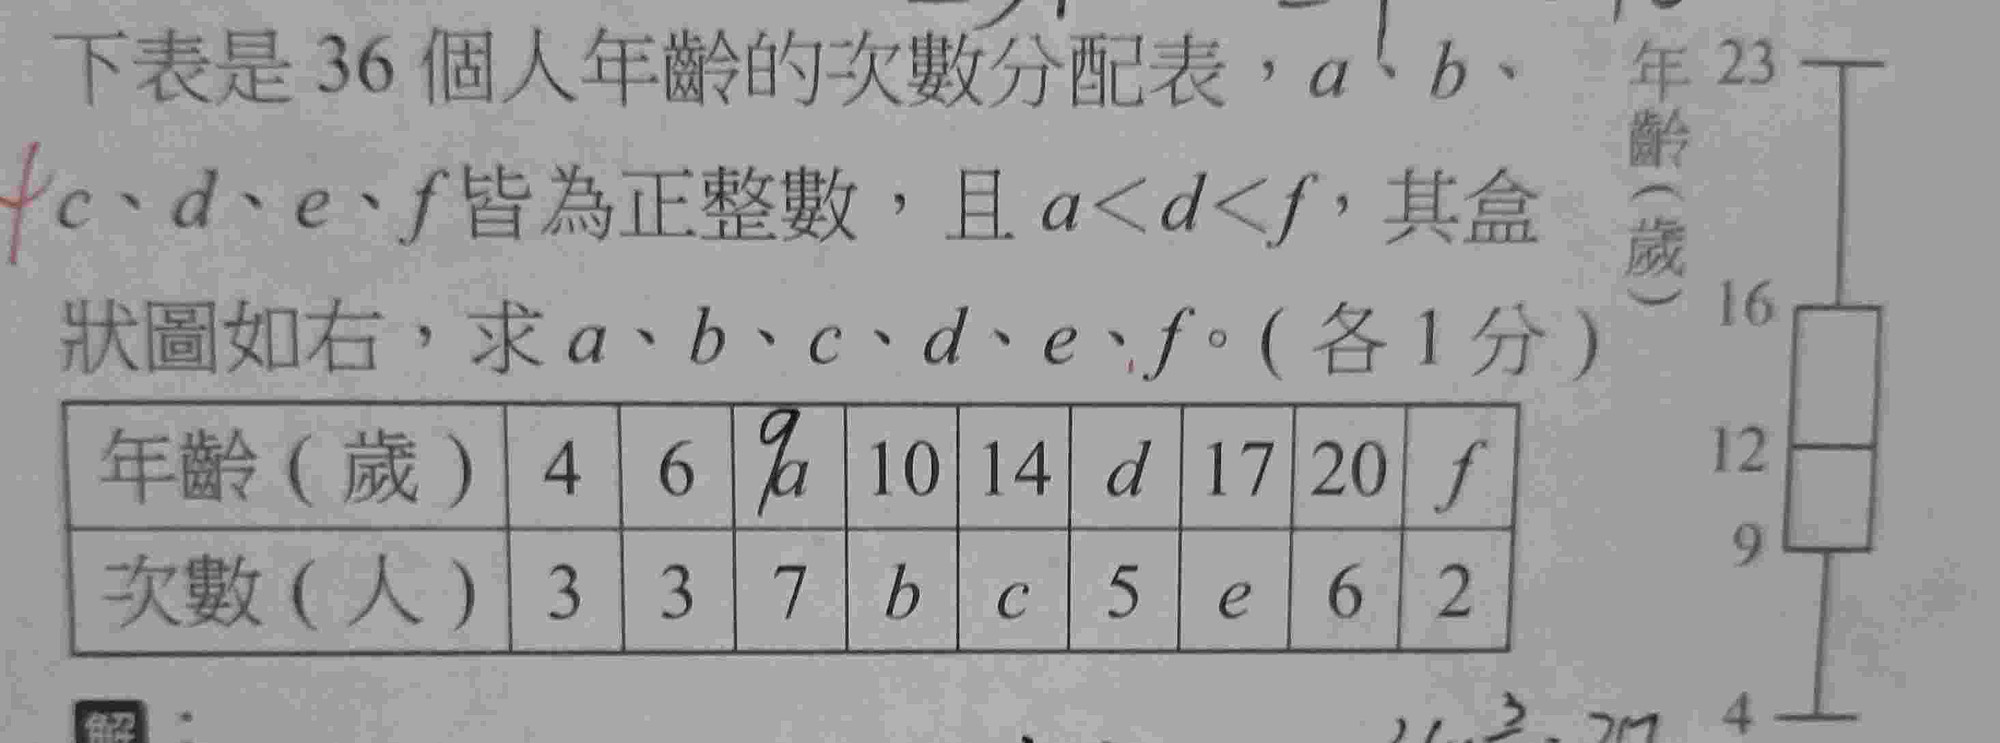 下表是 36 個人年齡的次數分配表，a、b、
c、d、e、f 皆為正整數，且 a<d<f，其盒
狀圖如右，求 a、b、c、d、e、f。( 各 1 分 )
年齡 ( 歲 ) 4 6 9 a 10 14 d 17 20 f
次數 ( 人 ) 3 3 7 b c 5 e 6 2
解：
年齡(歲)
23
16
12
9
4